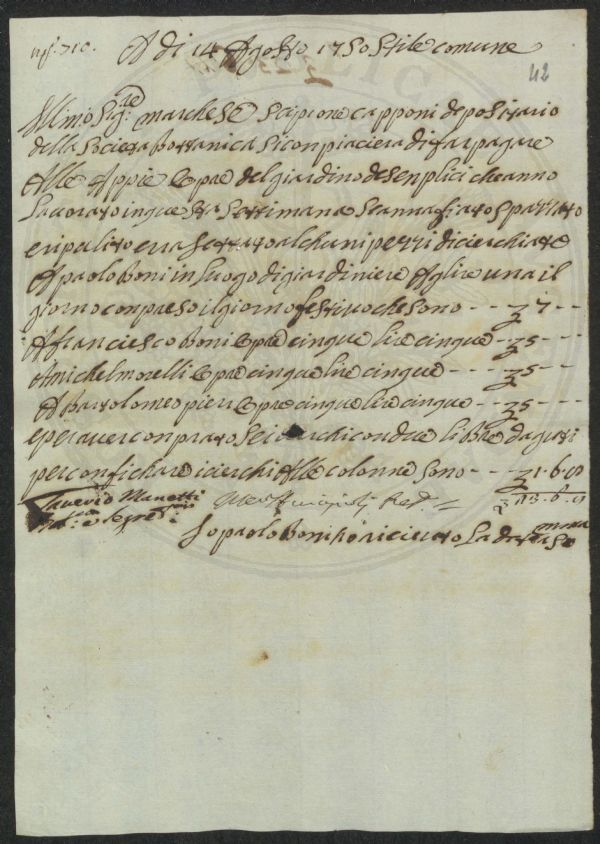 A di 14 Agosto 1750 Stile comune
42
Ill.mo Sig.re marchese Scipione capponi depositario
della Societa Bottanica si conpiacera di far pagare
Alle Appie Opre del giardino de Senplici che anno
lavorato in questa Settimana e anna fiato spazzato
e ripulito e rasettato alchuni pezzi di cierchiate
A paolo Boni in luogo di giardiniere A lire una il
giorno conpreso il giorno festivo che sono - - 7 - -
A franciesco Boni Opre cinque lire cinque - - 5 - -
A michel morelli Opre cinque lire cinque - - - 5 - -
A Bartolomeo pieri Opre cinque lire cinque - - 5 - -
e per aver conprato Sei cierchi con due libbre d aguti
per confichare i cierchi Alle colonne Sono - - - 1.6.8
Saverio Manetti
Seg.rio
Io paolo Boni ho ricieuto la detta somma